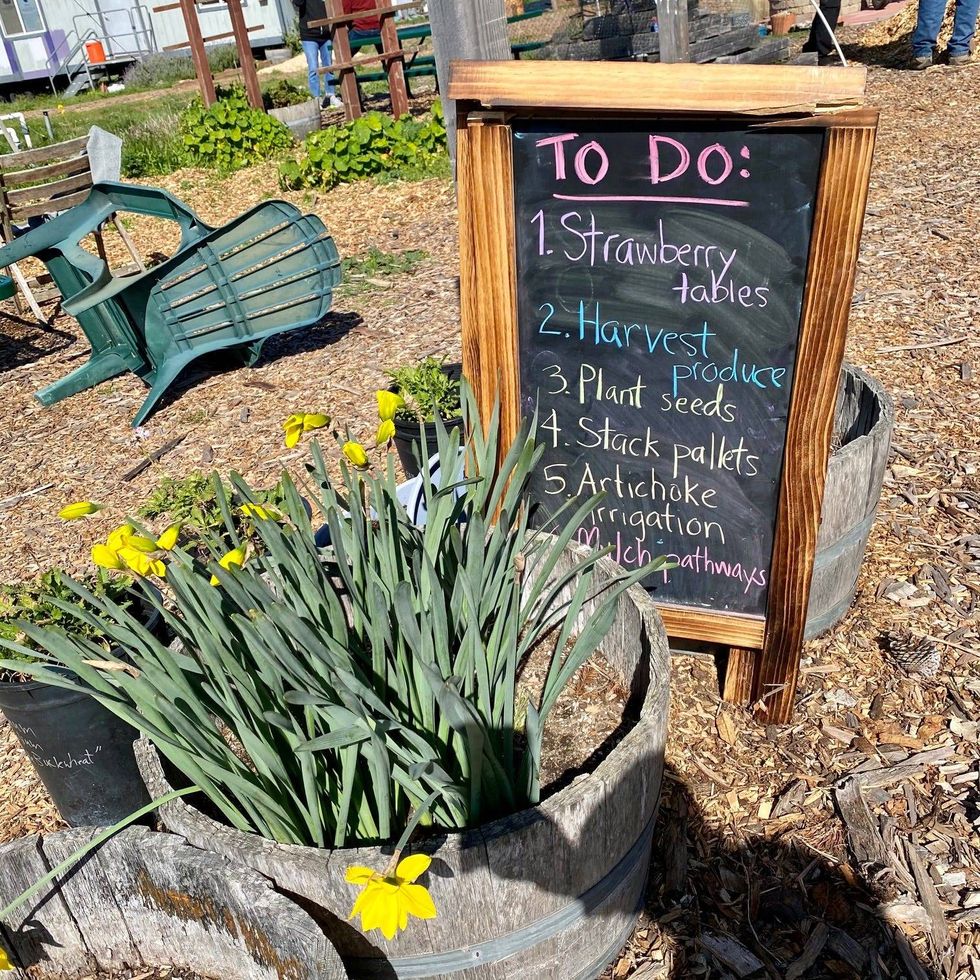 To Do:
1. Strawberry
tables
2. Harvest
produce
3. Plant seeds
4. Stack pallets
5. Artichoke
irrigation
Mulch pathways
Buckwheat"